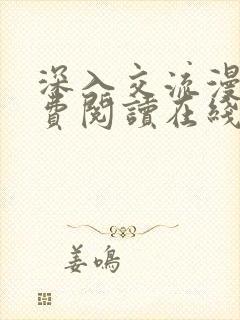 深入交流漫
費閱讀在綫
姜鳴